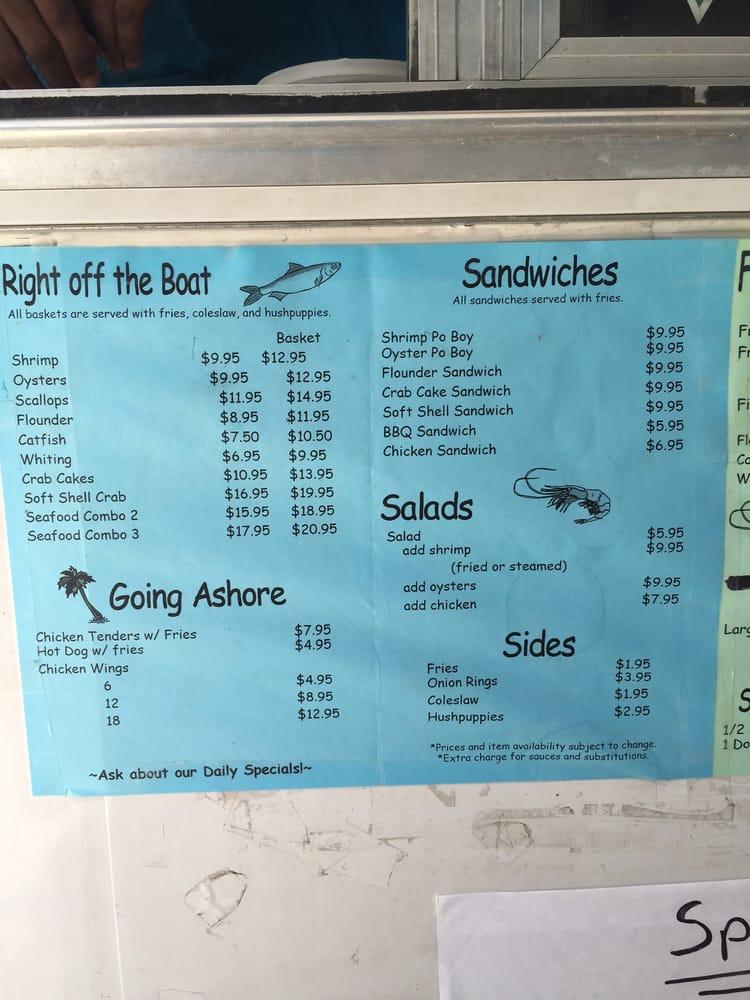 Right off the Boat
All baskets are served with fries, coleslaw, and hushpuppies.
Basket
Shrimp $9.95 $12.95
Oysters $9.95 $12.95
Scallops $11.95 $14.95
Flounder $8.95 $11.95
Catfish $7.50 $10.50
Whiting $6.95 $9.95
Crab Cakes $10.95 $13.95
Soft Shell Crab $16.95 $19.95
Seafood Combo 2 $15.95 $18.95
Seafood Combo 3 $17.95 $20.95
Going Ashore
Chicken Tenders w/ Fries $7.95
Hot Dog w/ fries $4.95
Chicken Wings
6 $4.95
12 $8.95
18 $12.95
~Ask about our Daily Specials!~
Sandwiches
All sandwiches served with fries.
Shrimp Po Boy $9.95
Oyster Po Boy $9.95
Flounder Sandwich $9.95
Crab Cake Sandwich $9.95
Soft Shell Sandwich $9.95
BBQ Sandwich $5.95
Chicken Sandwich $6.95
Salads
Salad $5.95
add shrimp $9.95
(fried or steamed)
add oysters $9.95
add chicken $7.95
Sides
Fries $1.95
Onion Rings $3.95
Coleslaw $1.95
Hushpuppies $2.95
*Prices and item availability subject to change.
*Extra charge for sauces and substitutions.
1/2
1 Do
Sp